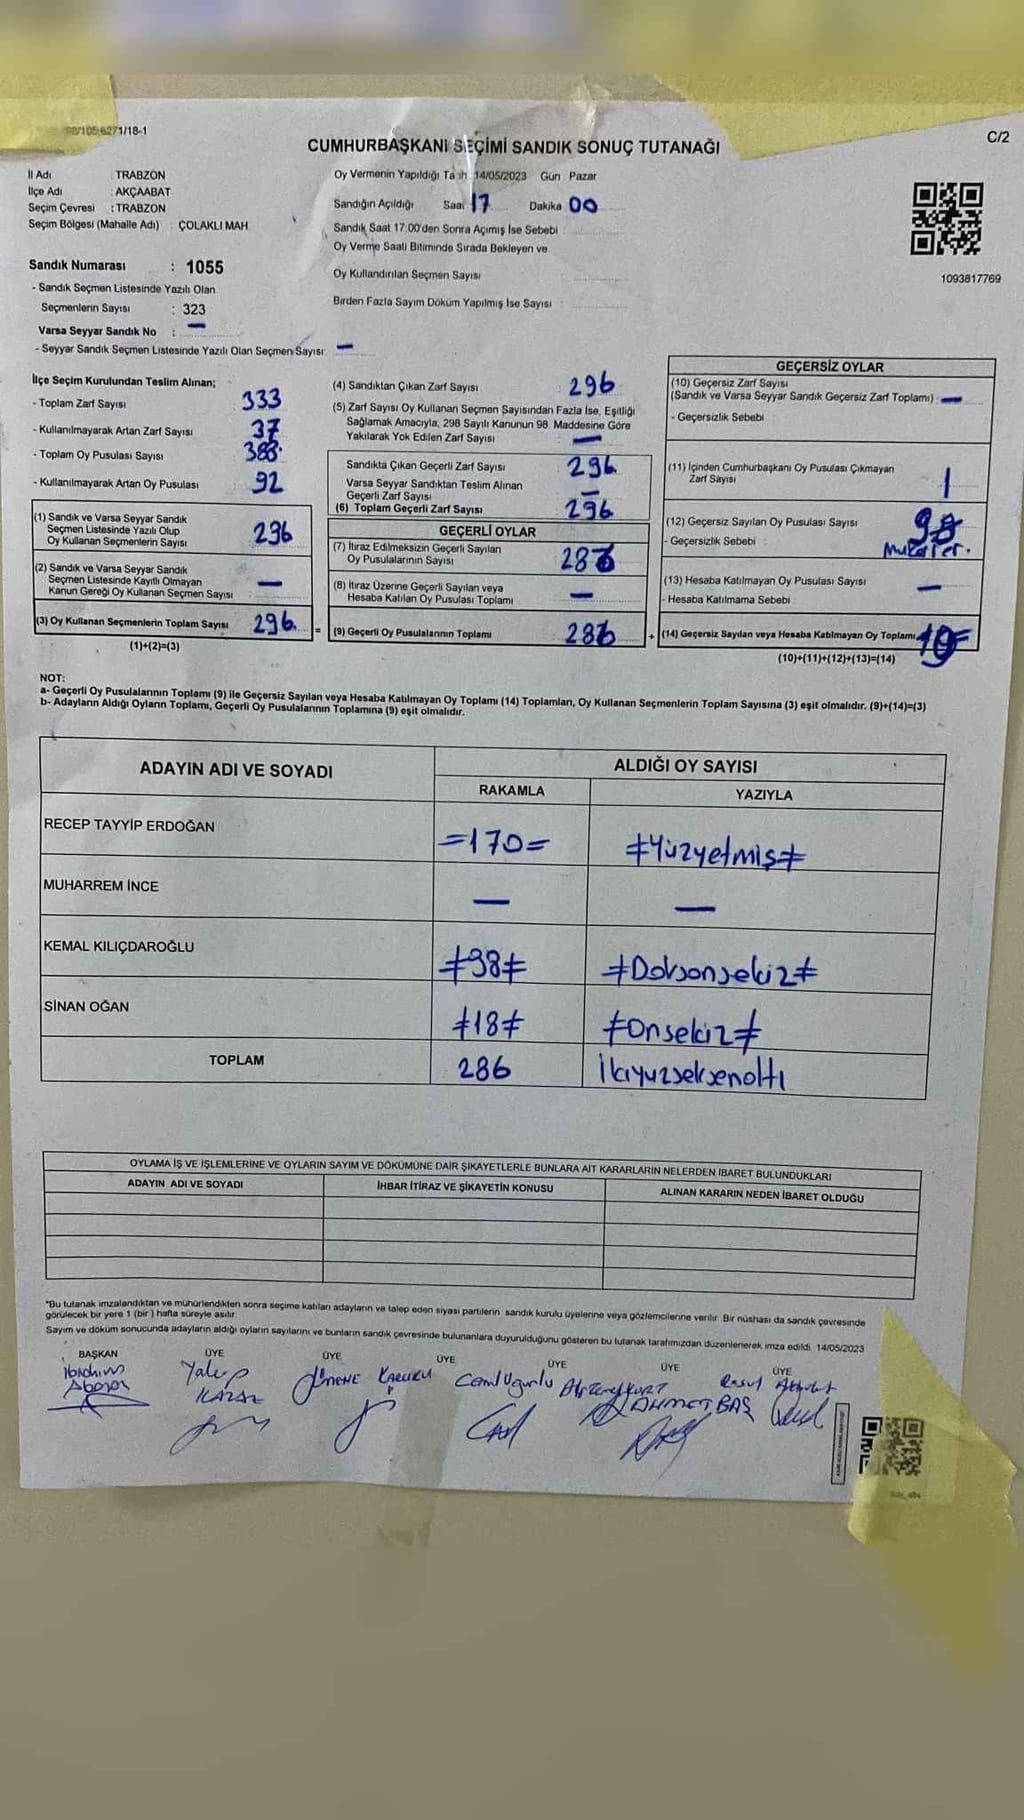 98/105;6271/18-1
C/2
CUMHURBAŞKANI SEÇİMİ SANDIK SONUÇ TUTANAĞI
İl Adı TRABZON
İlçe Adı : AKÇAABAT
Seçim Çevresi : TRABZON
Seçim Bölgesi (Mahalle Adı) : ÇOLAKLI MAH.
Sandık Numarası : 1055
- Sandık Seçmen Listesinde Yazılı Olan
Seçmenlerin Sayısı : 323
Varsa Seyyar Sandık No : —
- Seyyar Sandık Seçmen Listesinde Yazılı Olan Seçmen Sayısı: —
Oy Vermenin Yapıldığı 14/05/2023 Gün Pazar
Sandığın Açıldığı Saat 17 Dakika 00
Sandık Saat 17:00'den Sonra Açımış İse Sebebi :
Oy Verme Saati Bitiminde Sırada Bekleyen ve
Oy Kullandırılan Seçmen Sayısı
Birden Fazla Sayım Döküm Yapılmış İse Sayısı :
1093817769
İlçe Seçim Kurulundan Teslim Alınan;
- Toplam Zarf Sayısı : 333
- Kullanılmayarak Artan Zarf Sayısı : 37
- Toplam Oy Pusulası Sayısı : 388
- Kullanılmayarak Artan Oy Pusulası : 92
(1) Sandık ve Varsa Seyyar Sandık
Seçmen Listesinde Yazılı Olup
Oy Kullanan Seçmenlerin Sayısı : 296
(2) Sandık ve Varsa Seyyar Sandık
Seçmen Listesinde Kayıtlı Olmayan
Kanun Gereği Oy Kullanan Seçmen Sayısı : —
(3) Oy Kullanan Seçmenlerin Toplam Sayısı : 296
(1)+(2)=(3)
(4) Sandıktan Çıkan Zarf Sayısı : 296
(5) Zarf Sayısı Oy Kullanan Seçmen Sayısından Fazla İse, Eşitliği
Sağlamak Amacıyla; 298 Sayılı Kanunun 98. Maddesine Göre
Yakılarak Yok Edilen Zarf Sayısı : —
Sandıkta Çıkan Geçerli Zarf Sayısı : 296
Varsa Seyyar Sandıktan Teslim Alınan
Geçerli Zarf Sayısı : —
(6) Toplam Geçerli Zarf Sayısı : 296
GEÇERLİ OYLAR
(7) İtiraz Edilmeksizin Geçerli Sayılan
Oy Pusulalarının Sayısı : 286
(8) İtiraz Üzerine Geçerli Sayılan veya
Hesaba Katılan Oy Pusulası Toplamı : —
= (9) Geçerli Oy Pusulalarının Toplamı : 286
GEÇERSİZ OYLAR
(10) Geçersiz Zarf Sayısı
(Sandık ve Varsa Seyyar Sandık Geçersiz Zarf Toplamı) : —
- Geçersizlik Sebebi :
(11) İçinden Cumhurbaşkanı Oy Pusulası Çıkmayan
Zarf Sayısı : 1
(12) Geçersiz Sayılan Oy Pusulası Sayısı :
- Geçersizlik Sebebi :
(13) Hesaba Katılmayan Oy Pusulası Sayısı : —
- Hesaba Katılmama Sebebi :
+ (14) Geçersiz Sayılan veya Hesaba Katılmayan Oy Toplamı:
(10)+(11)+(12)+(13)=(14)
NOT:
a- Geçerli Oy Pusulalarının Toplamı (9) ile Geçersiz Sayılan veya Hesaba Katılmayan Oy Toplamı (14) Toplamları, Oy Kullanan Seçmenlerin Toplam Sayısına (3) eşit olmalıdır. (9)+(14)=(3)
b- Adayların Aldığı Oyların Toplamı, Geçerli Oy Pusulalarının Toplamına (9) eşit olmalıdır.
ADAYIN ADI VE SOYADI
ALDIĞI OY SAYISI
RAKAMLA YAZIYLA
RECEP TAYYİP ERDOĞAN =170= ≠Yüzyetmiş≠
MUHARREM İNCE — —
KEMAL KILIÇDAROĞLU ≠98≠ ≠Doksonsekiz≠
SİNAN OĞAN ≠18≠ ≠Onsekiz≠
TOPLAM 286 İkiyüzseksenaltı
OYLAMA İŞ VE İŞLEMLERİNE VE OYLARIN SAYIM VE DÖKÜMÜNE DAİR ŞİKAYETLERLE BUNLARA AİT KARARLARIN NELERDEN İBARET BULUNDUKLARI
ADAYIN ADI VE SOYADI İHBAR İTİRAZ VE ŞİKAYETİN KONUSU ALINAN KARARIN NEDEN İBARET OLDUĞU
*Bu tutanak imzalandıktan ve mühürlendikten sonra seçime katılan adayların ve talep eden siyasi partilerin sandık kurulu üyelerine veya gözlemcilerine verilir. Bir nüshası da sandık çevresinde
görülecek bir yere 1 (bir) hafta süreyle asılır.
Sayım ve döküm sonucunda adayların aldığı oyların sayılarını ve bunların sandık çevresinde bulunanlara duyurulduğunu gösteren bu tutanak tarafımızdan düzenlenerek imza edildi. 14/05/2023
BAŞKAN ÜYE ÜYE ÜYE ÜYE ÜYE ÜYE
AHMET BAŞ